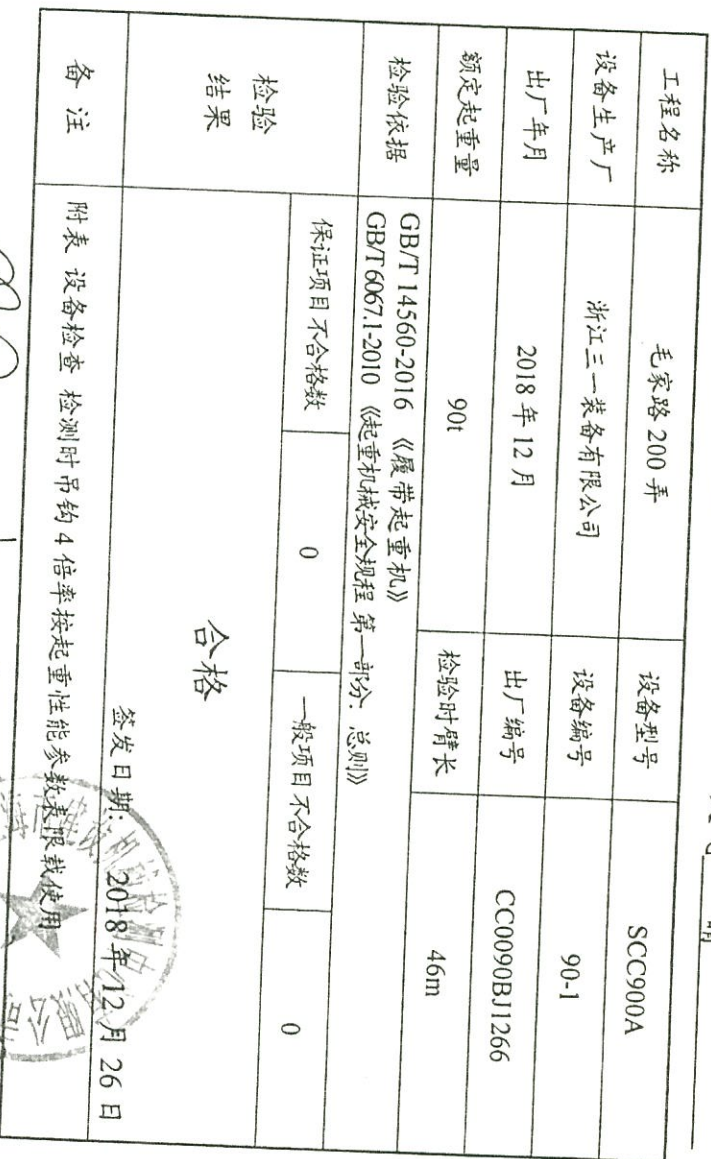 工程名称 毛家路 200 弄 设备型号 SCC900A
设备生产厂 浙江三一装备有限公司 设备编号 90-1
出厂年月 2018 年 12 月 出厂编号 CC0090BJ1266
额定起重量 90t 检验时臂长 46m
检验依据 GB/T 14560-2016 《履带起重机》
GB/T6067.1-2010 《起重机械安全规程 第一部分：总则》
检验
结果
保证项目不合格数 0 一般项目不合格数 0
合格
签发日期: 2018 年 12 月 26 日
备 注 附表 设备检查 检测时吊钩 4 倍率按起重性能参数表限载使用